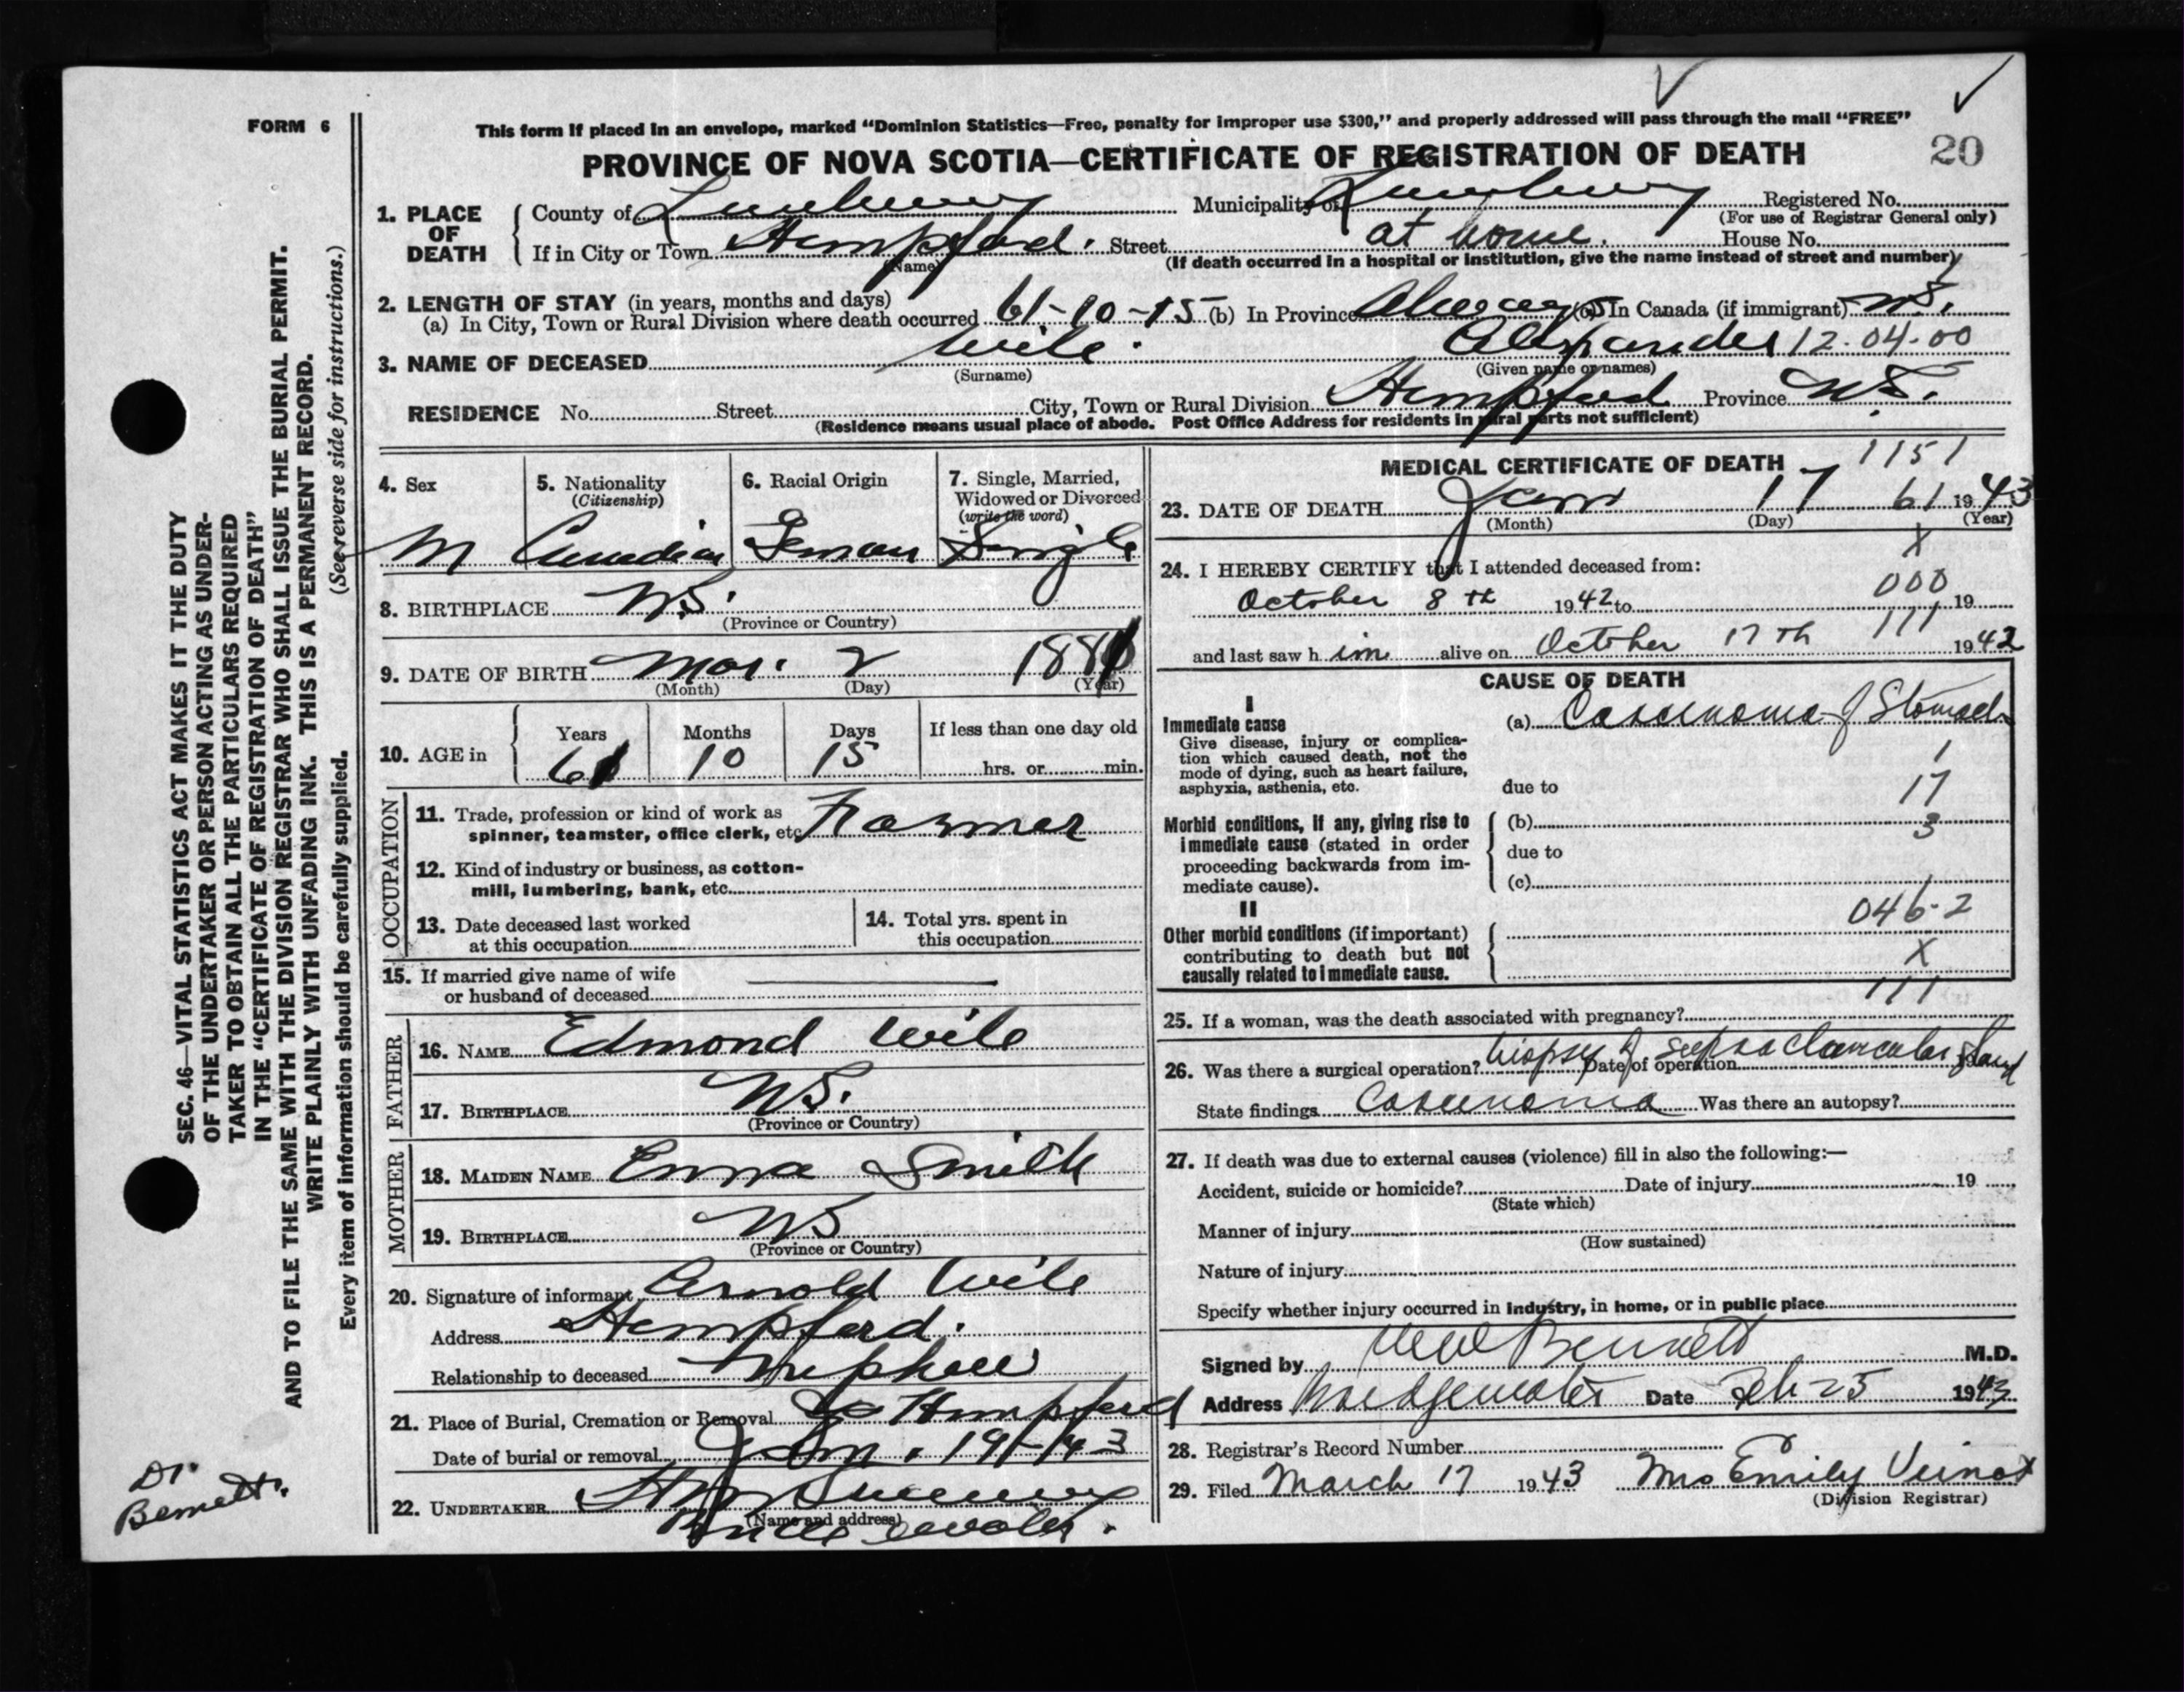 FORM 6
This form if placed in an envelope, marked “Dominion Statistics—Free, penalty for improper use $300,” and properly addressed will pass through the mail “FREE”
PROVINCE OF NOVA SCOTIA—CERTIFICATE OF REGISTRATION OF DEATH
20
1. PLACE OF DEATH
County of Lunenburg Municipality of Lunenburg Registered No.
(For use of Registrar General only)
If in City or Town Hempford. Street at home. House No.
(Name) (If death occurred in a hospital or institution, give the name instead of street and number)
2. LENGTH OF STAY (in years, months and days)
(a) In City, Town or Rural Division where death occurred 61-10-15 (b) In Province Always (c) In Canada (if immigrant) N.S.
3. NAME OF DECEASED Wile Alexander 12-04-00
(Surname) (Given name or names)
RESIDENCE No. Street City, Town or Rural Division Hempford Province N.S.
(Residence means usual place of abode. Post Office Address for residents in rural parts not sufficient)
4. Sex
M
5. Nationality
(Citizenship)
Canadian
6. Racial Origin
German
7. Single, Married, Widowed or Divorced
(write the word)
Single
8. BIRTHPLACE N.S.
(Province or Country)
9. DATE OF BIRTH Mar. 2 1881
(Month) (Day) (Year)
10. AGE in
Years Months Days If less than one day old
61 10 15 hrs. or min.
OCCUPATION
11. Trade, profession or kind of work as
spinner, teamster, office clerk, etc. Farmer
12. Kind of industry or business, as cotton-
mill, lumbering, bank, etc.
13. Date deceased last worked
at this occupation
14. Total yrs. spent in
this occupation
15. If married give name of wife
or husband of deceased
FATHER
16. NAME Edmond Wile
17. BIRTHPLACE N.S.
(Province or Country)
MOTHER
18. MAIDEN NAME Emma Smith
19. BIRTHPLACE N.S
(Province or Country)
20. Signature of informant Arnold Wile
Address Hempford.
Relationship to deceased Nephew
21. Place of Burial, Cremation or Removal Hempford
Date of burial or removal Jan. 19-43
22. UNDERTAKER
(Name and address)
MEDICAL CERTIFICATE OF DEATH
1151
23. DATE OF DEATH Jan 17 61 1943
(Month) (Day) (Year)
X
24. I HEREBY CERTIFY that I attended deceased from:
October 8th 1942 to 000 19
and last saw him alive on October 17th 111 1942
CAUSE OF DEATH
I
Immediate cause
Give disease, injury or complica-
tion which caused death, not the
mode of dying, such as heart failure,
asphyxia, asthenia, etc.
(a) Carcinoma of Stomach
1
due to 17
Morbid conditions, if any, giving rise to
immediate cause (stated in order
proceeding backwards from im-
mediate cause).
(b) 3
due to
(c)
II
Other morbid conditions (if important)
contributing to death but not
causally related to immediate cause.
046-2
X
111
25. If a woman, was the death associated with pregnancy?
26. Was there a surgical operation? biopsy of supraclavicular gland Date of operation
State findings Carcinoma Was there an autopsy?
27. If death was due to external causes (violence) fill in also the following:—
Accident, suicide or homicide? Date of injury 19
(State which)
Manner of injury
(How sustained)
Nature of injury
Specify whether injury occurred in industry, in home, or in public place
Signed by Bennett M.D.
Address Bridgewater Date Feb 25 1943
28. Registrar's Record Number
29. Filed March 17 1943 Mrs Emily Veinot
(Division Registrar)
SEC. 46—VITAL STATISTICS ACT MAKES IT THE DUTY
OF THE UNDERTAKER OR PERSON ACTING AS UNDER-
TAKER TO OBTAIN ALL THE PARTICULARS REQUIRED
IN THE “CERTIFICATE OF REGISTRATION OF DEATH”
AND TO FILE THE SAME WITH THE DIVISION REGISTRAR WHO SHALL ISSUE THE BURIAL PERMIT.
WRITE PLAINLY WITH UNFADING INK. THIS IS A PERMANENT RECORD.
(See reverse side for instructions.)
Every item of information should be carefully supplied.
Dr
Bennett.